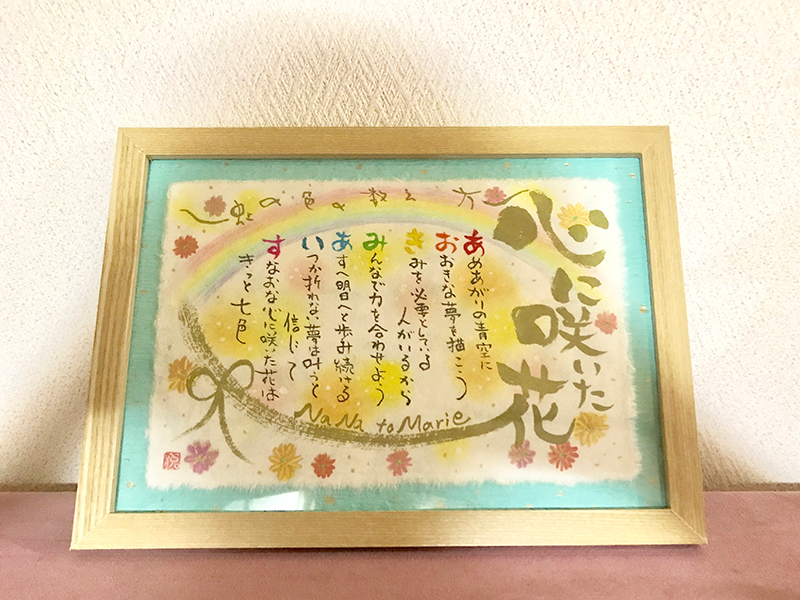 心に咲いた花
虹の色の数え方
あめあがりの青空に
おおきな夢を描こう
きみを必要としている
人がいるから
みんなで力を合わせよう
あすへ明日へと歩み続ける
いつか折れない夢は叶うと
信じて
すなおな心に咲いた花は
きっと七色
NaNa to Marie